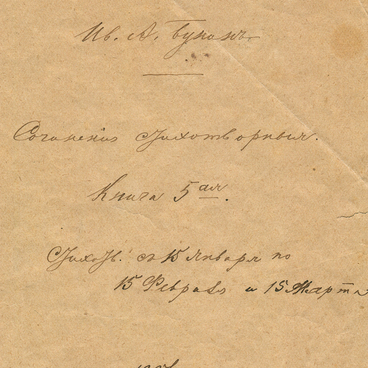 Ив. А. Бунинъ
Сочиненiя Стихотворныя.
Книга 5ая.
Стихотв. съ 15 Января по
15 Февраля и 15 Марта